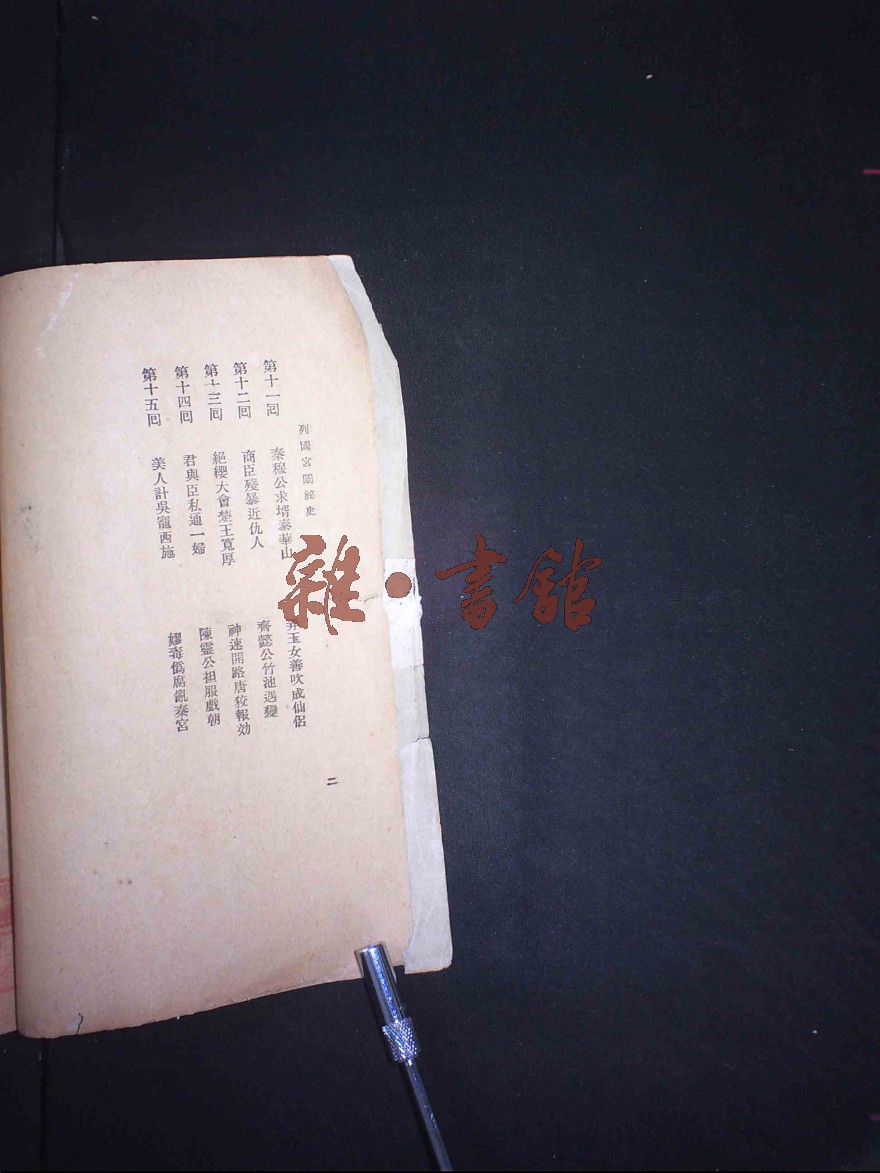 列國宮闈祕史
第十一囘 秦穆公求壻泰華山 弄玉女善吹成仙侶
第十二囘 商臣殘暴近仇人 齊懿公竹池遇變
第十三囘 絕纓大會楚王寬厚 神速開路唐狡報効
第十四囘 君與臣私通一婦 陳靈公袒服戲朝
第十五囘 美人計吳寵西施 嫪毐僞腐亂秦宮
二
雜·書館